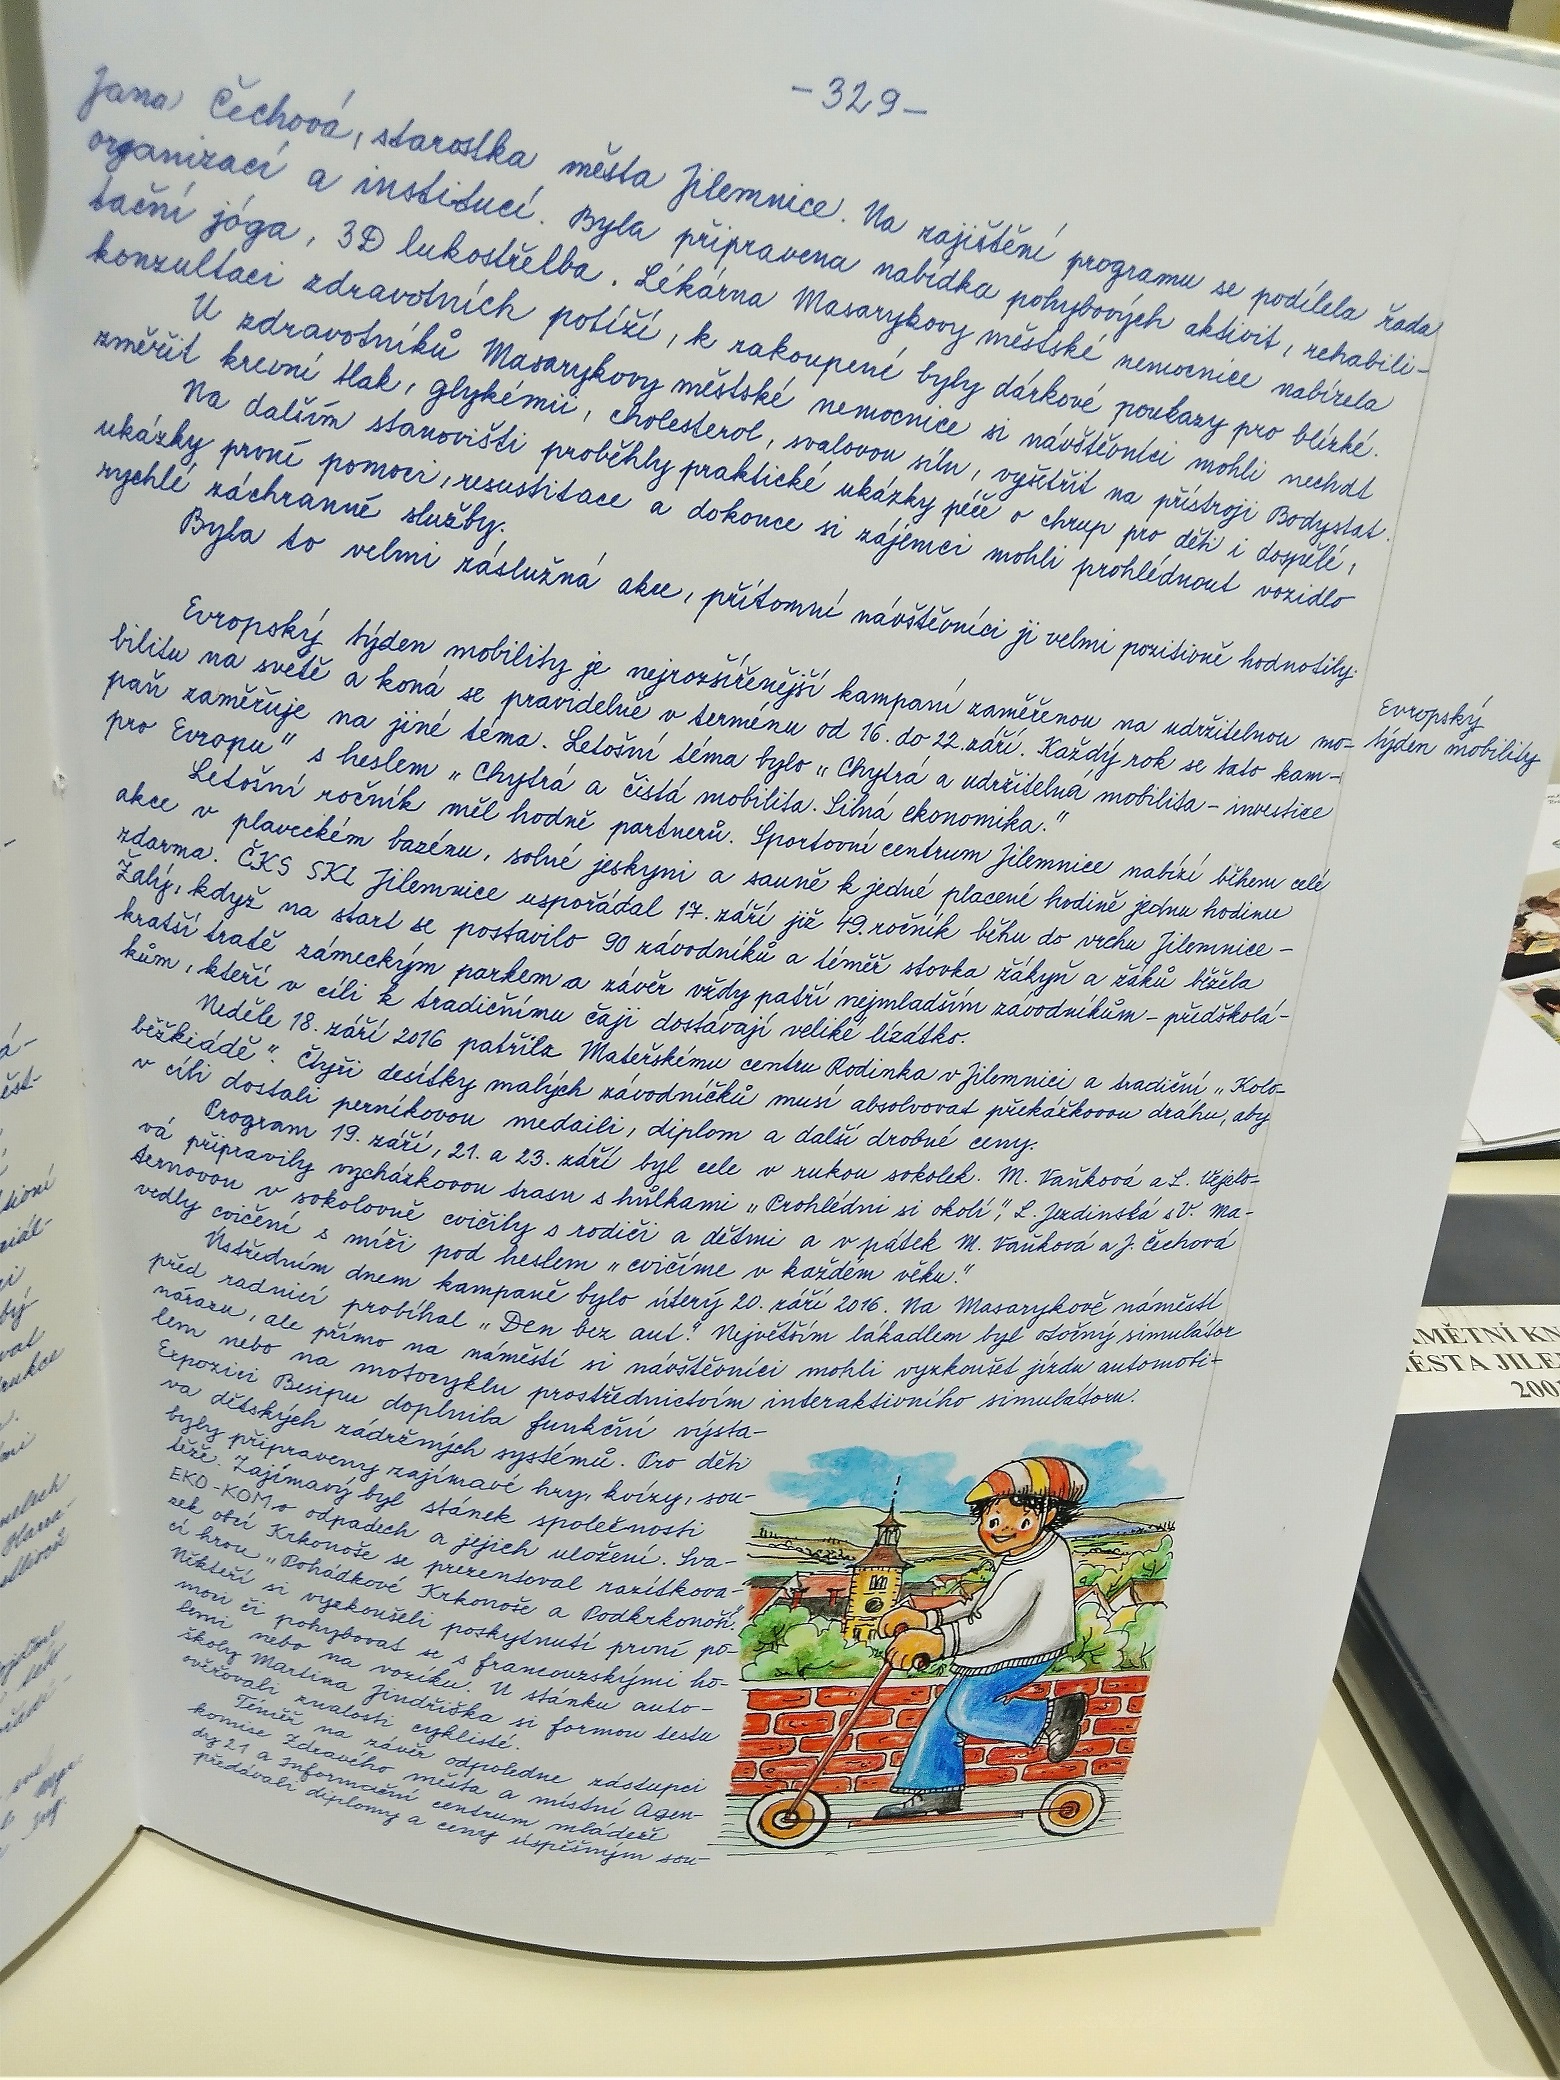 -329-
Jana Čechová, starostka města Jilemnice. Na zajištění programu se podílela řada
organizací a institucí. Byla připravena nabídka pohybových aktivit, rehabili-
tační jóga, 3D lukostřelba. Lékárna Masarykovy městské nemocnice nabízela
konzultaci zdravotních potíží, k zakoupení byly dárkové poukazy pro blízké.
U zdravotníků Masarykovy městské nemocnice si návštěvníci mohli nechat
změřit krevní tlak, glykémii, cholesterol, svalovou sílu, vyšetřit na přístroji Bodystat.
Na dalším stanovišti proběhly praktické ukázky péče o chrup pro děti i dospělé,
ukázky první pomoci, resustitace a dokonce si zájemci mohli prohlédnout vozidlo
rychlé záchranné služby.
Byla to velmi záslužná akce, přítomní návštěvníci ji velmi pozitivně hodnotily.
Evropský týden mobility je nejrozšířenější kampaní zaměřenou na udržitelnou mo-
bilitu na světě a koná se pravidelně v termínu od 16. do 22. září. Každý rok se tato kam-
paň zaměřuje na jiné téma. Letošní téma bylo „Chytrá a udržitelná mobilita - investice
pro Evropu" s heslem „Chytrá a čistá mobilita. Silná ekonomika."
Evropský
týden mobility
Letošní ročník měl hodně partnerů. Sportovní centrum Jilemnice nabízí během celé
akce v plaveckém bazénu, solné jeskyni a sauně k jedné placené hodině jednu hodinu
zdarma. ČKS SKI Jilemnice uspořádal 17. září již 49. ročník běhu do vrchu Jilemnice -
Žalý, když na start se postavilo 90 závodníků a téměř stovka žákyň a žáků běžela
kratší tratě zámeckým parkem a závěr vždy patří nejmladším závodníkům - předškolá-
kům, kteří v cíli k tradičnímu čaji dostávají veliké lízátko.
Neděle 18. září 2016 patřila Mateřskému centru Rodinka v Jilemnici a tradiční „Kolo-
běžkiádě". Čtyři desítky malých závodníčků musí absolvovat překážkovou dráhu, aby
v cíli dostali perníkovou medaili, diplom a další drobné ceny.
Program 19. září, 21. a 23. září byl cele v rukou sokolek. M. Vaňková a L. Vejelo-
vá připravily vycházkovou trasu s hůlkami „Prohlédni si okolí", L. Jerdinská s V. Ma-
ternovou v sokolovně cvičily s rodiči a dětmi a v pátek M. Vaňková a J. Čechová
vedly cvičení s míči pod heslem „cvičíme v každém věku."
Ústředním dnem kampaně bylo úterý 20. září 2016. Na Masarykově náměstí
před radnicí probíhal „Den bez aut." Největším lákadlem byl otočný simulátor
nárazu, ale přímo na náměstí si návštěvníci mohli vyzkoušet jízdu automobi-
lem nebo na motocyklu prostřednictvím interaktivního simulátoru.
Expozici Besipu doplnila funkční výsta-
va dětských zádržných systémů. Pro děti
byly připraveny zajímavé hry, kvízy, sou-
těže. Zajímavý byl stánek společnosti
EKO-KOM o odpadech a jejich uložení. Sva-
zek obcí Krkonoše se prezentoval razítkova-
cí hrou „Pohádkové Krkonoše a Podkrkonoší."
Někteří si vyzkoušeli poskytnutí první po-
moci či pohybovat se s francouzskými ho-
lemi nebo na vozíku. U stánku auto-
školy Martina Jindřiška si formou testu
ověřovali znalosti cyklisté.
Téměř na závěr odpoledne zástupci
komise Zdravého města a místní Agen-
dy 21 a Informační centrum mládeže
předávali diplomy a ceny úspěšným sou-